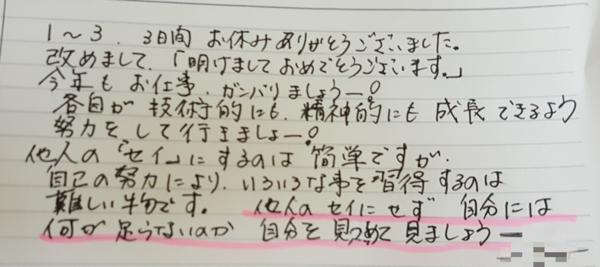 1~3. 3日間 お休みありがとうございました。
改めまして、「明けましておめでとうございます。」
今年も お仕事、ガンバリましょー!
各自が 技術的にも、精神的にも 成長 できるよう
努力を して行きましょー!
他人の「セイ」にするのは 簡単ですが、
自己の努力により、いろいろな事を習得するのは
難しい物です。 他人のセイにせず 自分には
何が 足らないのか 自分を見つめて 見ましょうー